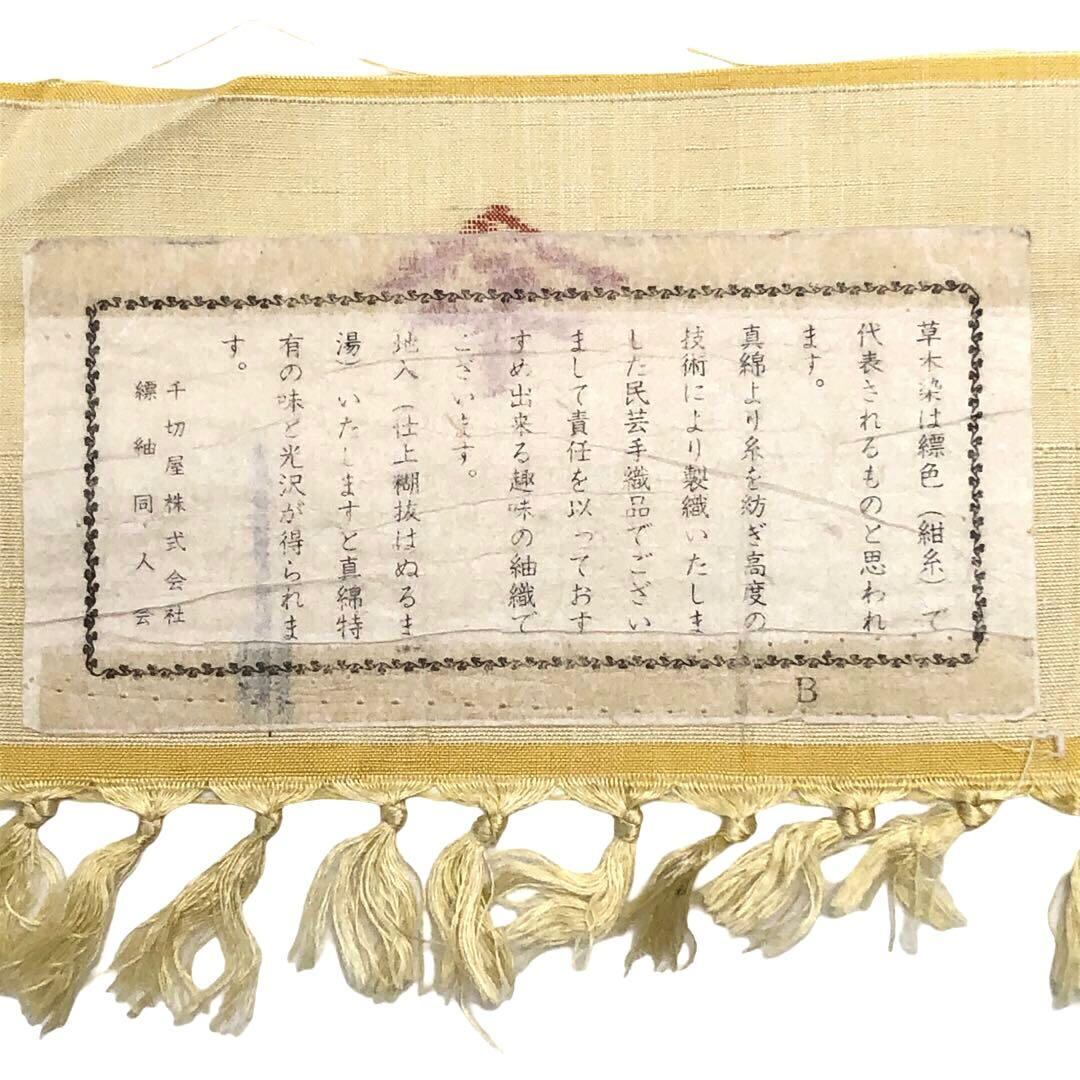 草木染は縹色（紺糸）で
代表されるものと思われ
ます。
真綿より糸を紡ぎ高度の
技術により製織いたしま
した民芸手織品でござい
まして責任を以っておす
すめ出来る趣味の紬織で
ございます。
地入（仕上糊抜はぬるま
湯）いたしますと真綿特
有の味と光沢が得られま
す。
千切屋株式会社
縹紬同人会
B